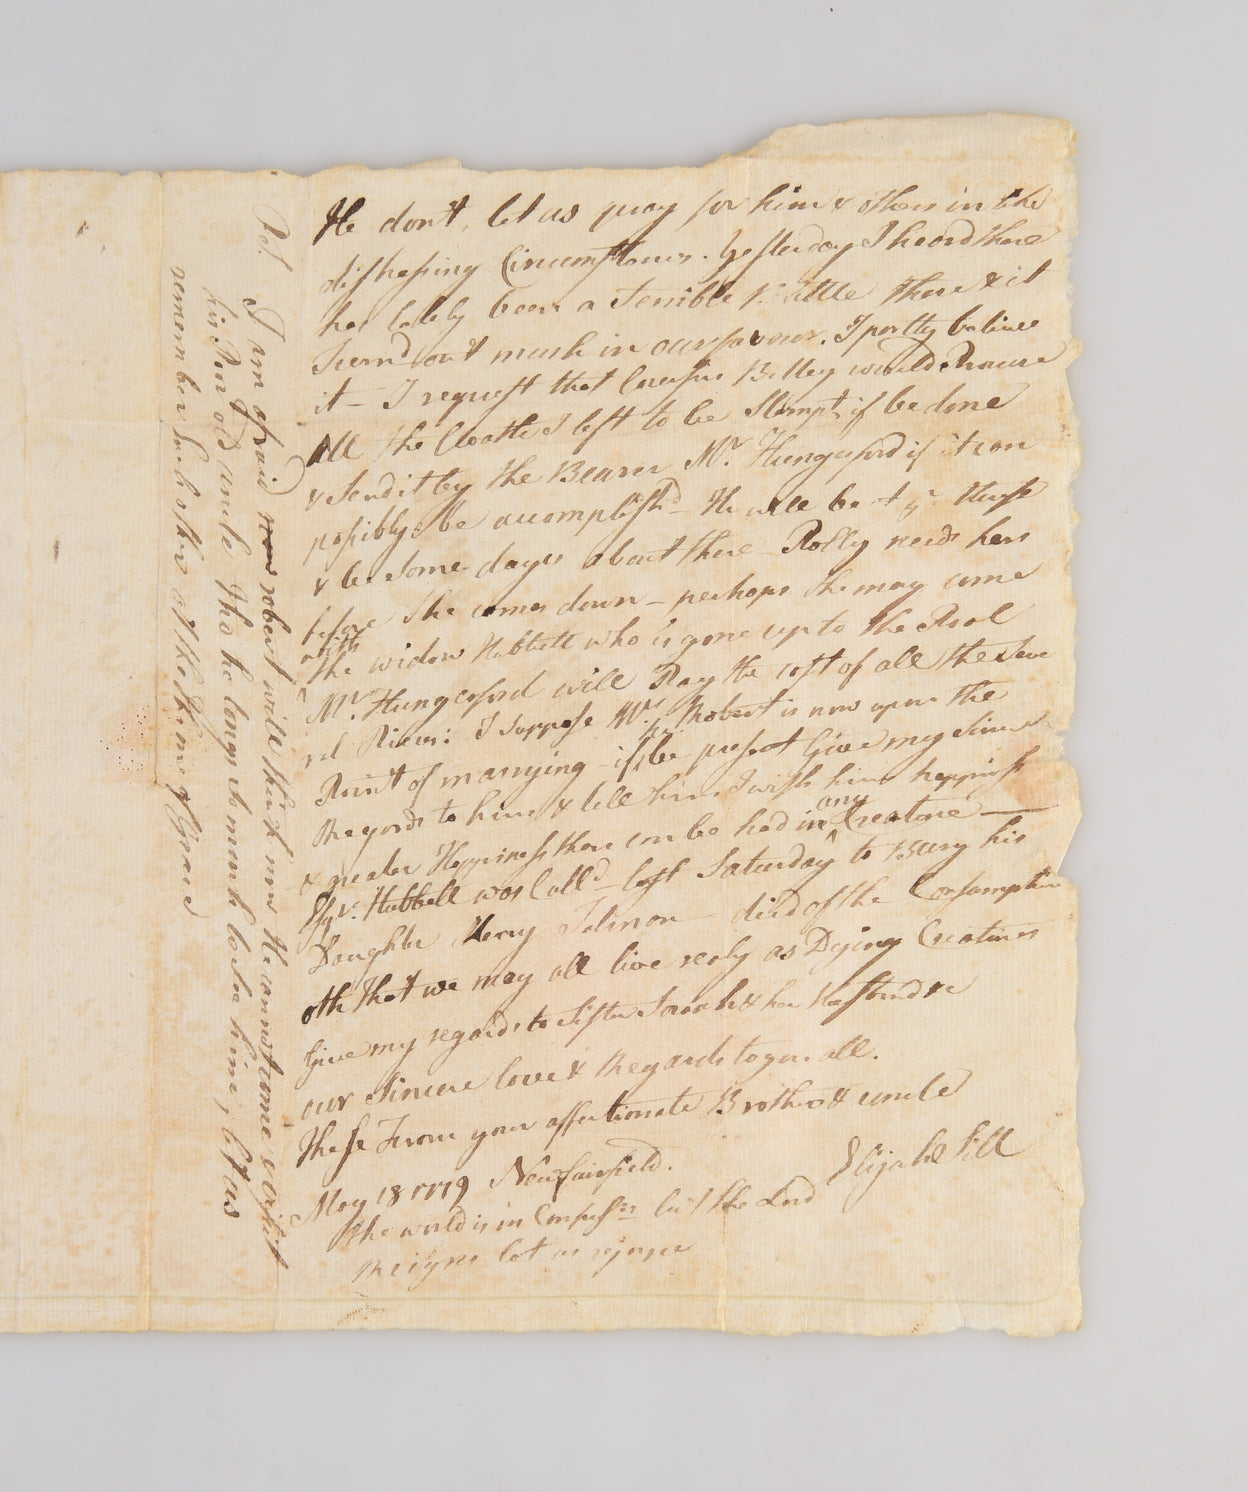 He don't, let us pray for him & others in like
distressing Circumstances. Yesterday I heard there
has lately been a Terrible Battle there & it
turnd out much in our favour. I partly believe
it – I request that Cousin Billey would Procure
All the Cloath I left to be Stampt, if be done
& Send it by the Bearer Mr. Hungerford if it can
possibly be accomplishd – He will be at
& be some days about there – Polly needs hers
before She comes down – perhaps She may come
with
the widow Hubbell who is gone up to the
Mr. Hungerford will Pay the cost of all the Seve
ral Pieces: I suppose Mr. Robert is now upon the
Point of marrying – if he be present Give my Sincere
Regards to him & tell him I wish him happiness
& greater Happiness than can be had in any Creature —
Esqr. Hubbell was Calld – last Saturday to Bury his
Daughter Mercy – died of the Consumption
oth that we may all live realy as Dying Creatures
Give my regards to Sister Sarah & her Husband &c
our Sincere love & Regards to you all.
These From your affectionate Brother & uncle
Elijah Sill
May 18 1779 New fairfield.
The world is in Confusn but the Lord
Reigns let us rejoyce
P:S I am afraid robert will think now He cannot come & visit
his Poor old uncle Tho he longs so much to see him, let us
remember Each other at the throne of Grace